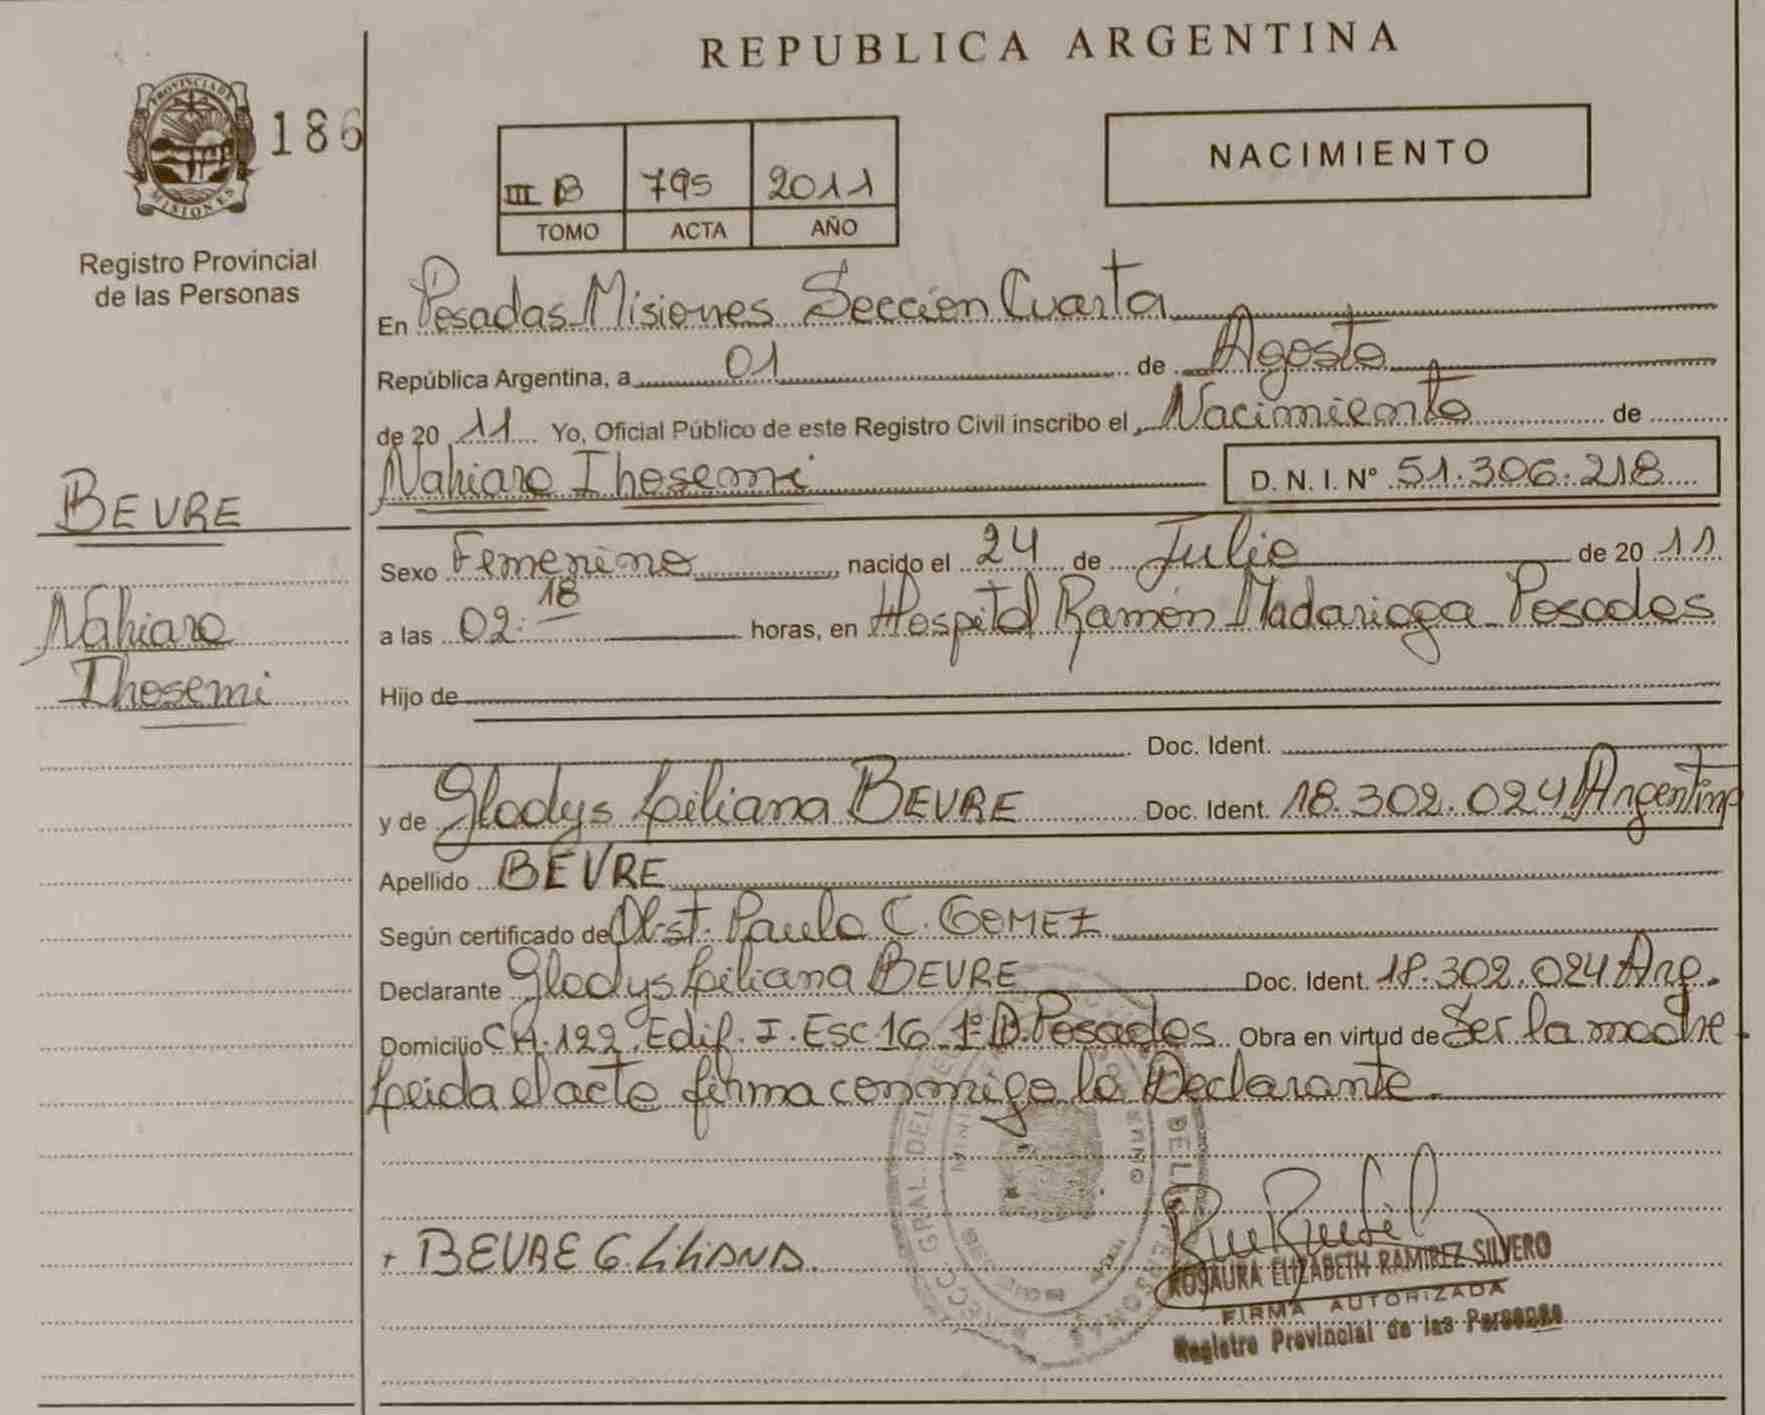 REPUBLICA ARGENTINA
PROVINCIA DE
MISIONES
186
Registro Provincial
de las Personas
III B 795 2011
TOMO ACTA AÑO
NACIMIENTO
En Posadas Misiones Sección Cuarta
República Argentina, a 01 de Agosto
de 20 11 Yo, Oficial Público de este Registro Civil inscribo el Nacimiento de
Nahiara Ihosemi D. N. I. N° 51.306.218
BEVRE
Nahiara
Ihosemi
Sexo Femenino nacido el 24 de Julio de 20 11
a las 02:18 horas, en Hospital Ramón Madariaga Posadas
Hijo de
Doc. Ident.
y de Gladys Liliana BEVRE Doc. Ident. 18.302.024 Argentina
Apellido BEVRE
Según certificado de Obst. Paula C. GOMEZ
Declarante Gladys Liliana BEVRE Doc. Ident. 18.302.024 Arg.
Domicilio CH. 122. Edif. I. Esc 16 1° D. Posadas Obra en virtud de Ser la madre
Leida el acta firma conmigo la Declarante.
BEVRE G. LILIANA.
ROSAURA ELIZABETH RAMIREZ SILVERO
FIRMA AUTORIZADA
Registro Provincial de las Personas